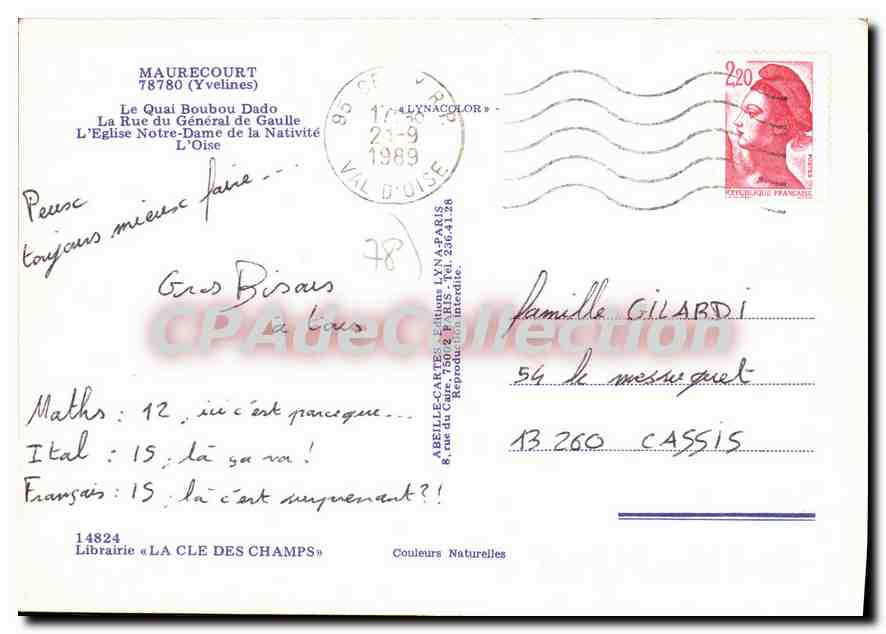 MAURECOURT
78780 (Yvelines)
Le Quai Boubou Dado
La Rue du Général de Gaulle
L'Eglise Notre-Dame de la Nativité
L'Oise
«LYNACOLOR» -
95 R.P.
21-9
1989
VAL D'OISE
2,20
POSTES
REPUBLIQUE FRANÇAISE
Peusc
toujours mieux faire...
78)
Gros Bisous
à tous
CPAdeCollection
Maths : 12, ici c'est parceque...
Ital : 15, là ça va !
Français : 15, là c'est surprenant ?!
14824
Librairie «LA CLE DES CHAMPS»
Couleurs Naturelles
ABEILLE-CARTES - Editions LYNA-PARIS
8, rue du Caire, 75002 PARIS - Tél. 236.41.28
Reproduction interdite.
famille GILARDI
54 le messuguet
13 260 CASSIS